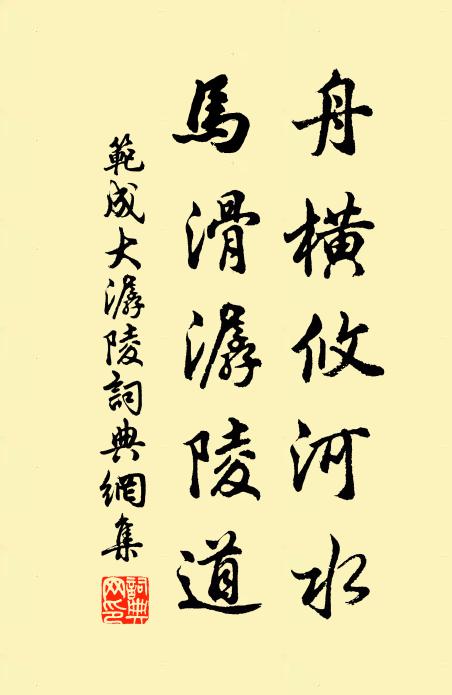 舟橫攸河水
馬滑潺陵道
範成大潺陵詞典網集
詞典網印